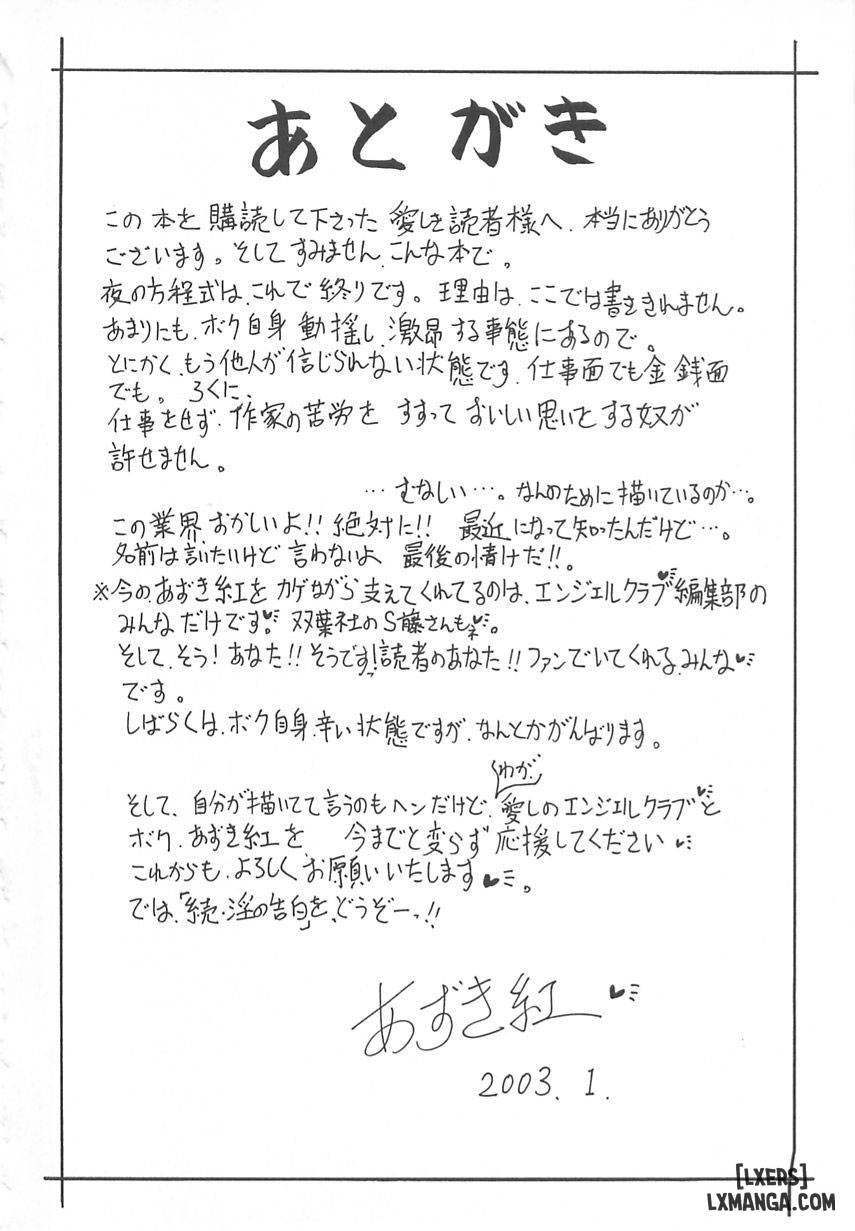 あとがき
この本を購読して下さった愛しき読者様へ、本当にありがとう
ございます。そしてすみません、こんな本で。
夜の方程式は、これで終りです。理由は、ここでは書ききれません。
あまりにも、ボク自身動揺し、激昂する事態にあるので。
とにかく、もう他人が信じられない状態です、仕事面でも金銭面
でも。ろくに、
仕事をせず、作家の苦労をすすっておいしい思いをする奴が
許せません。
…むなしい…。なんのために描いているのか…。
この業界、おかしいよ!!絶対に!!最近になって知ったんだけど…。
名前は言いたいけど言わないよ最後の情けだ!!。
※今の、あずき紅をカゲながら支えてくれてるのは、エンジェルクラブ編集部の
みんなだけです。双葉社のS藤さんもネ。
そして、そう!あなた!!そうです!読者のあなた!!ファンでいてくれる、みんな
です。
しばらくは、ボク自身、辛い状態ですが、なんとかがんばります。
わが、
そして、自分が描いてて言うのもヘンだけど、愛しのエンジェルクラブと
ボク、あずき紅を今までと変らず応援してください
これからも、よろしくお願いいたします。
では、「続・淫の告白」を、どうぞーっ!!
あずき紅
2003.1.
[LXERS]
LXMANGA.COM